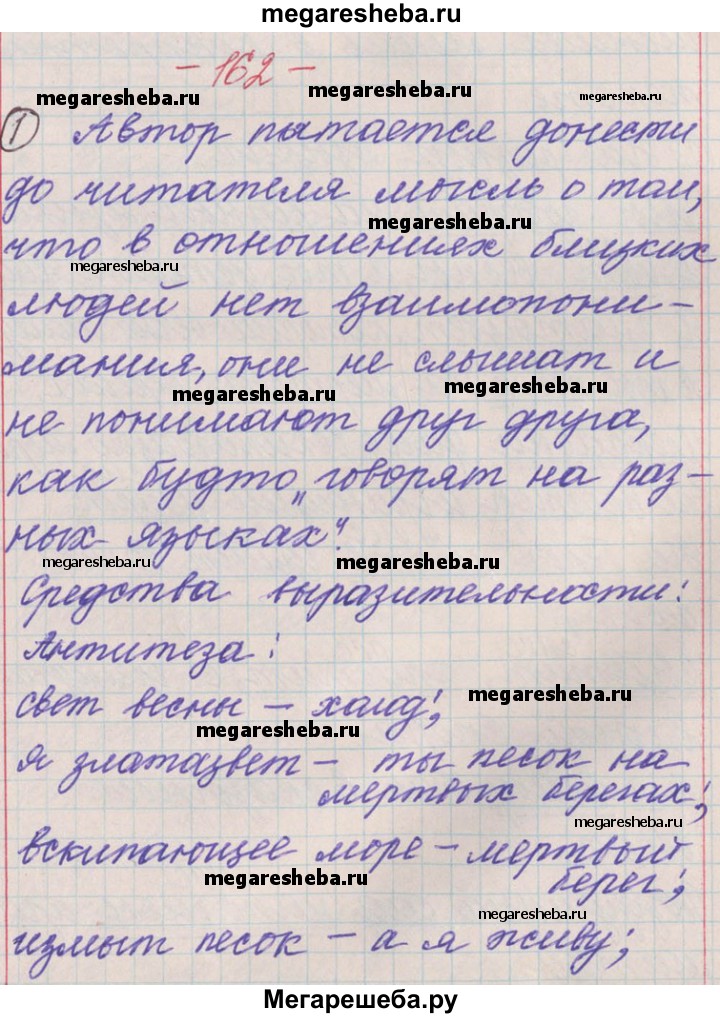 megaresheba.ru
- 162 -
megaresheba.ru
megaresheba.ru
megaresheba.ru
1 Автор пытается донести
до читателя мысль о том,
megaresheba.ru
что в отношениях близких
megaresheba.ru
людей нет взаимопони-
мания, они не слышат и
megaresheba.ru
megaresheba.ru
не понимают друг друга,
как будто „говорят на раз-
ных языках".
megaresheba.ru
megaresheba.ru
Средства выразительности:
Антитеза:
свет весны - холод;
megaresheba.ru
megaresheba.ru
я златоцвет - ты песок на
мертвых берегах;
megaresheba.ru
вскипающее море - мертвый
берег;
megaresheba.ru
megaresheba.ru
измыт песок - а я живу;
Мегарешеба.ру